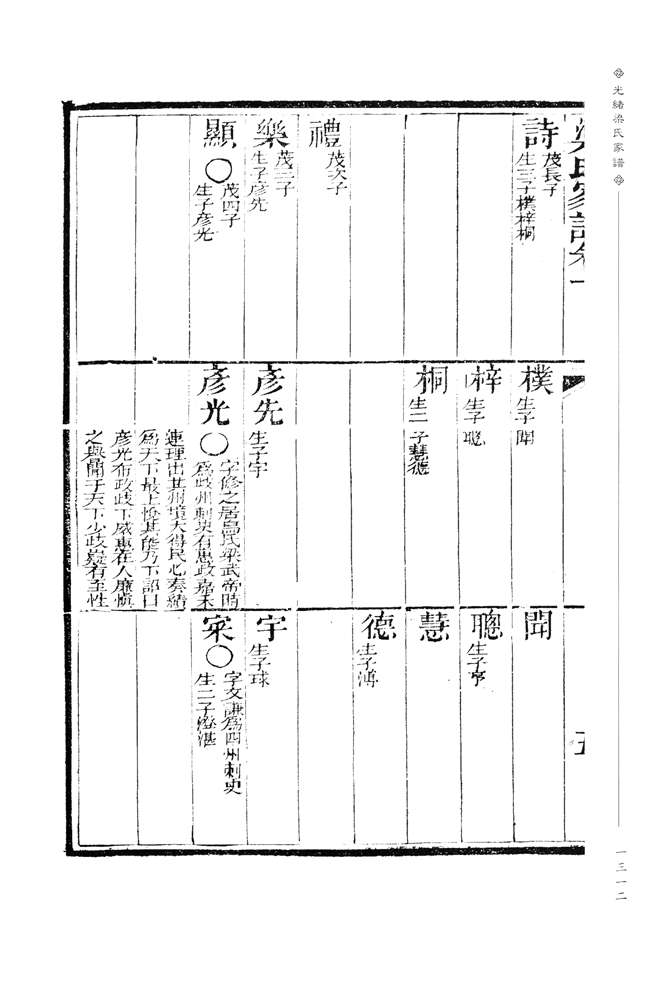 光緒梁氏家譜
梁氏家譜卷一
五
詩
茂長子
生三子樸梓桐
禮
茂次子
樂
茂三子
生子彥先
顯
茂四子
生子彥光
樸
生子聞
梓
生子聰
桐
生二子慧德
彥先
生子宇
彥光
字修之居烏氏梁武帝時
爲岐州刺史有惠政嘉禾
連理出其州境大得民心奏績
爲天下最上悅其能乃下詔曰
彥光布政岐下威惠在人廉愼
之譽聞于天下少岐嶷有至性
聞
聰
生子亨
慧
德
生子溥
宇
生子球
寀
字文謙爲四州刺史
生二子燈湛
一三一二